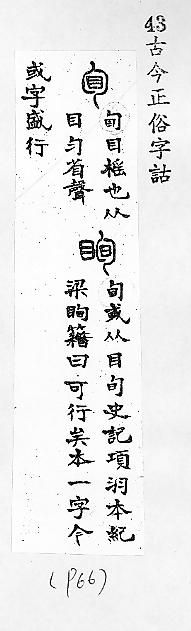 43 古今正俗字詁
𥄎 𥄎目榣也从
目匀省聲
眴 𥄎或从目旬史記項羽本紀
梁眴籍曰可行矣本一字今
或字盛行
(P66)